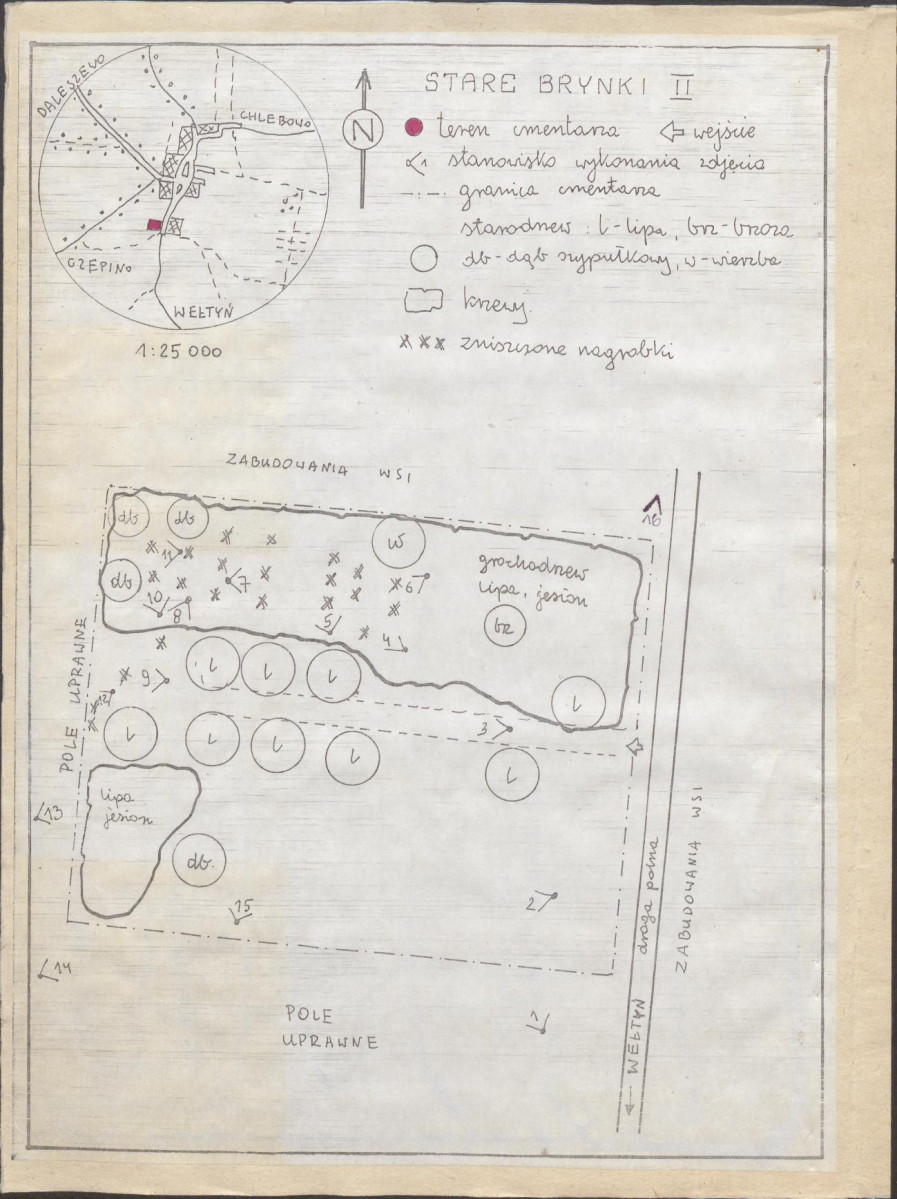 STARE BRYNKI II
DALESZEWO
CHLEBOWO
CZEPINO
WEŁTYŃ
1:25 000
N
teren cmentarza
wejście
1 stanowisko wykonania zdjęcia
granica cmentarza
starodrzew: l-lipa, brz-brzoza
db-dąb szypułkowy, w-wierzba
krzewy
zniszczone nagrobki
ZABUDOWANIA WSI
16
db
db
w
11
grochodrzew
lipa, jesion
db
7
6
10
8
5
bz
4
POLE UPRAWNE
9
l
l
l
12
l
3
l
l
l
l
l
lipa
jesion
13
db.
ZABUDOWANIA WSI
droga polna
2
15
14
POLE
UPRAWNE
1
WEŁTYŃ